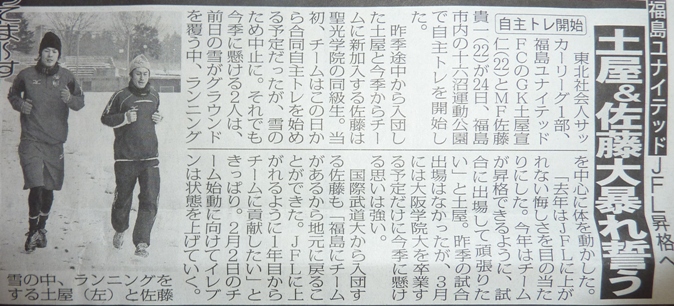 福島ユナイテッドJFL昇格へ
土屋&佐藤大暴れ誓う
自主トレ開始
東北社会人サッ
カーリーグ1部、
福島ユナイテッド
FCのGK土屋宣
仁(22)とMF佐藤
貴一(22)が24日、福島
市内の十六沼運動公園
で自主トレを開始し
た。
昨季途中から入団し
た土屋と今季からチー
ムに新加入する佐藤は
聖光学院の同級生。当
初、チームはこの日か
ら合同自主トレを始め
る予定だったが、雪の
ため中止に。それでも
今季に懸ける2人は、
前日の雪がグラウンド
を覆う中、ランニング
を中心に体を動かした。
「去年はJFLに上が
れない悔しさを目の当た
りにした。今年はチーム
が昇格できるように、試
合に出場して頑張りた
い」と土屋。昨季の試合
出場はなかったが、3月
には大阪学院大を卒業す
る予定だけに今季に懸け
る思いは強い。
国際武道大から入団す
る佐藤も「福島にチーム
があるから地元に戻るこ
とができた。JFLに上
がれるように1年目から
チームに貢献したい」と
きっぱり。2月2日のチ
ーム始動に向けてイレブ
ンは状態を上げていく。
雪の中、ランニングを
する土屋(左)と佐藤